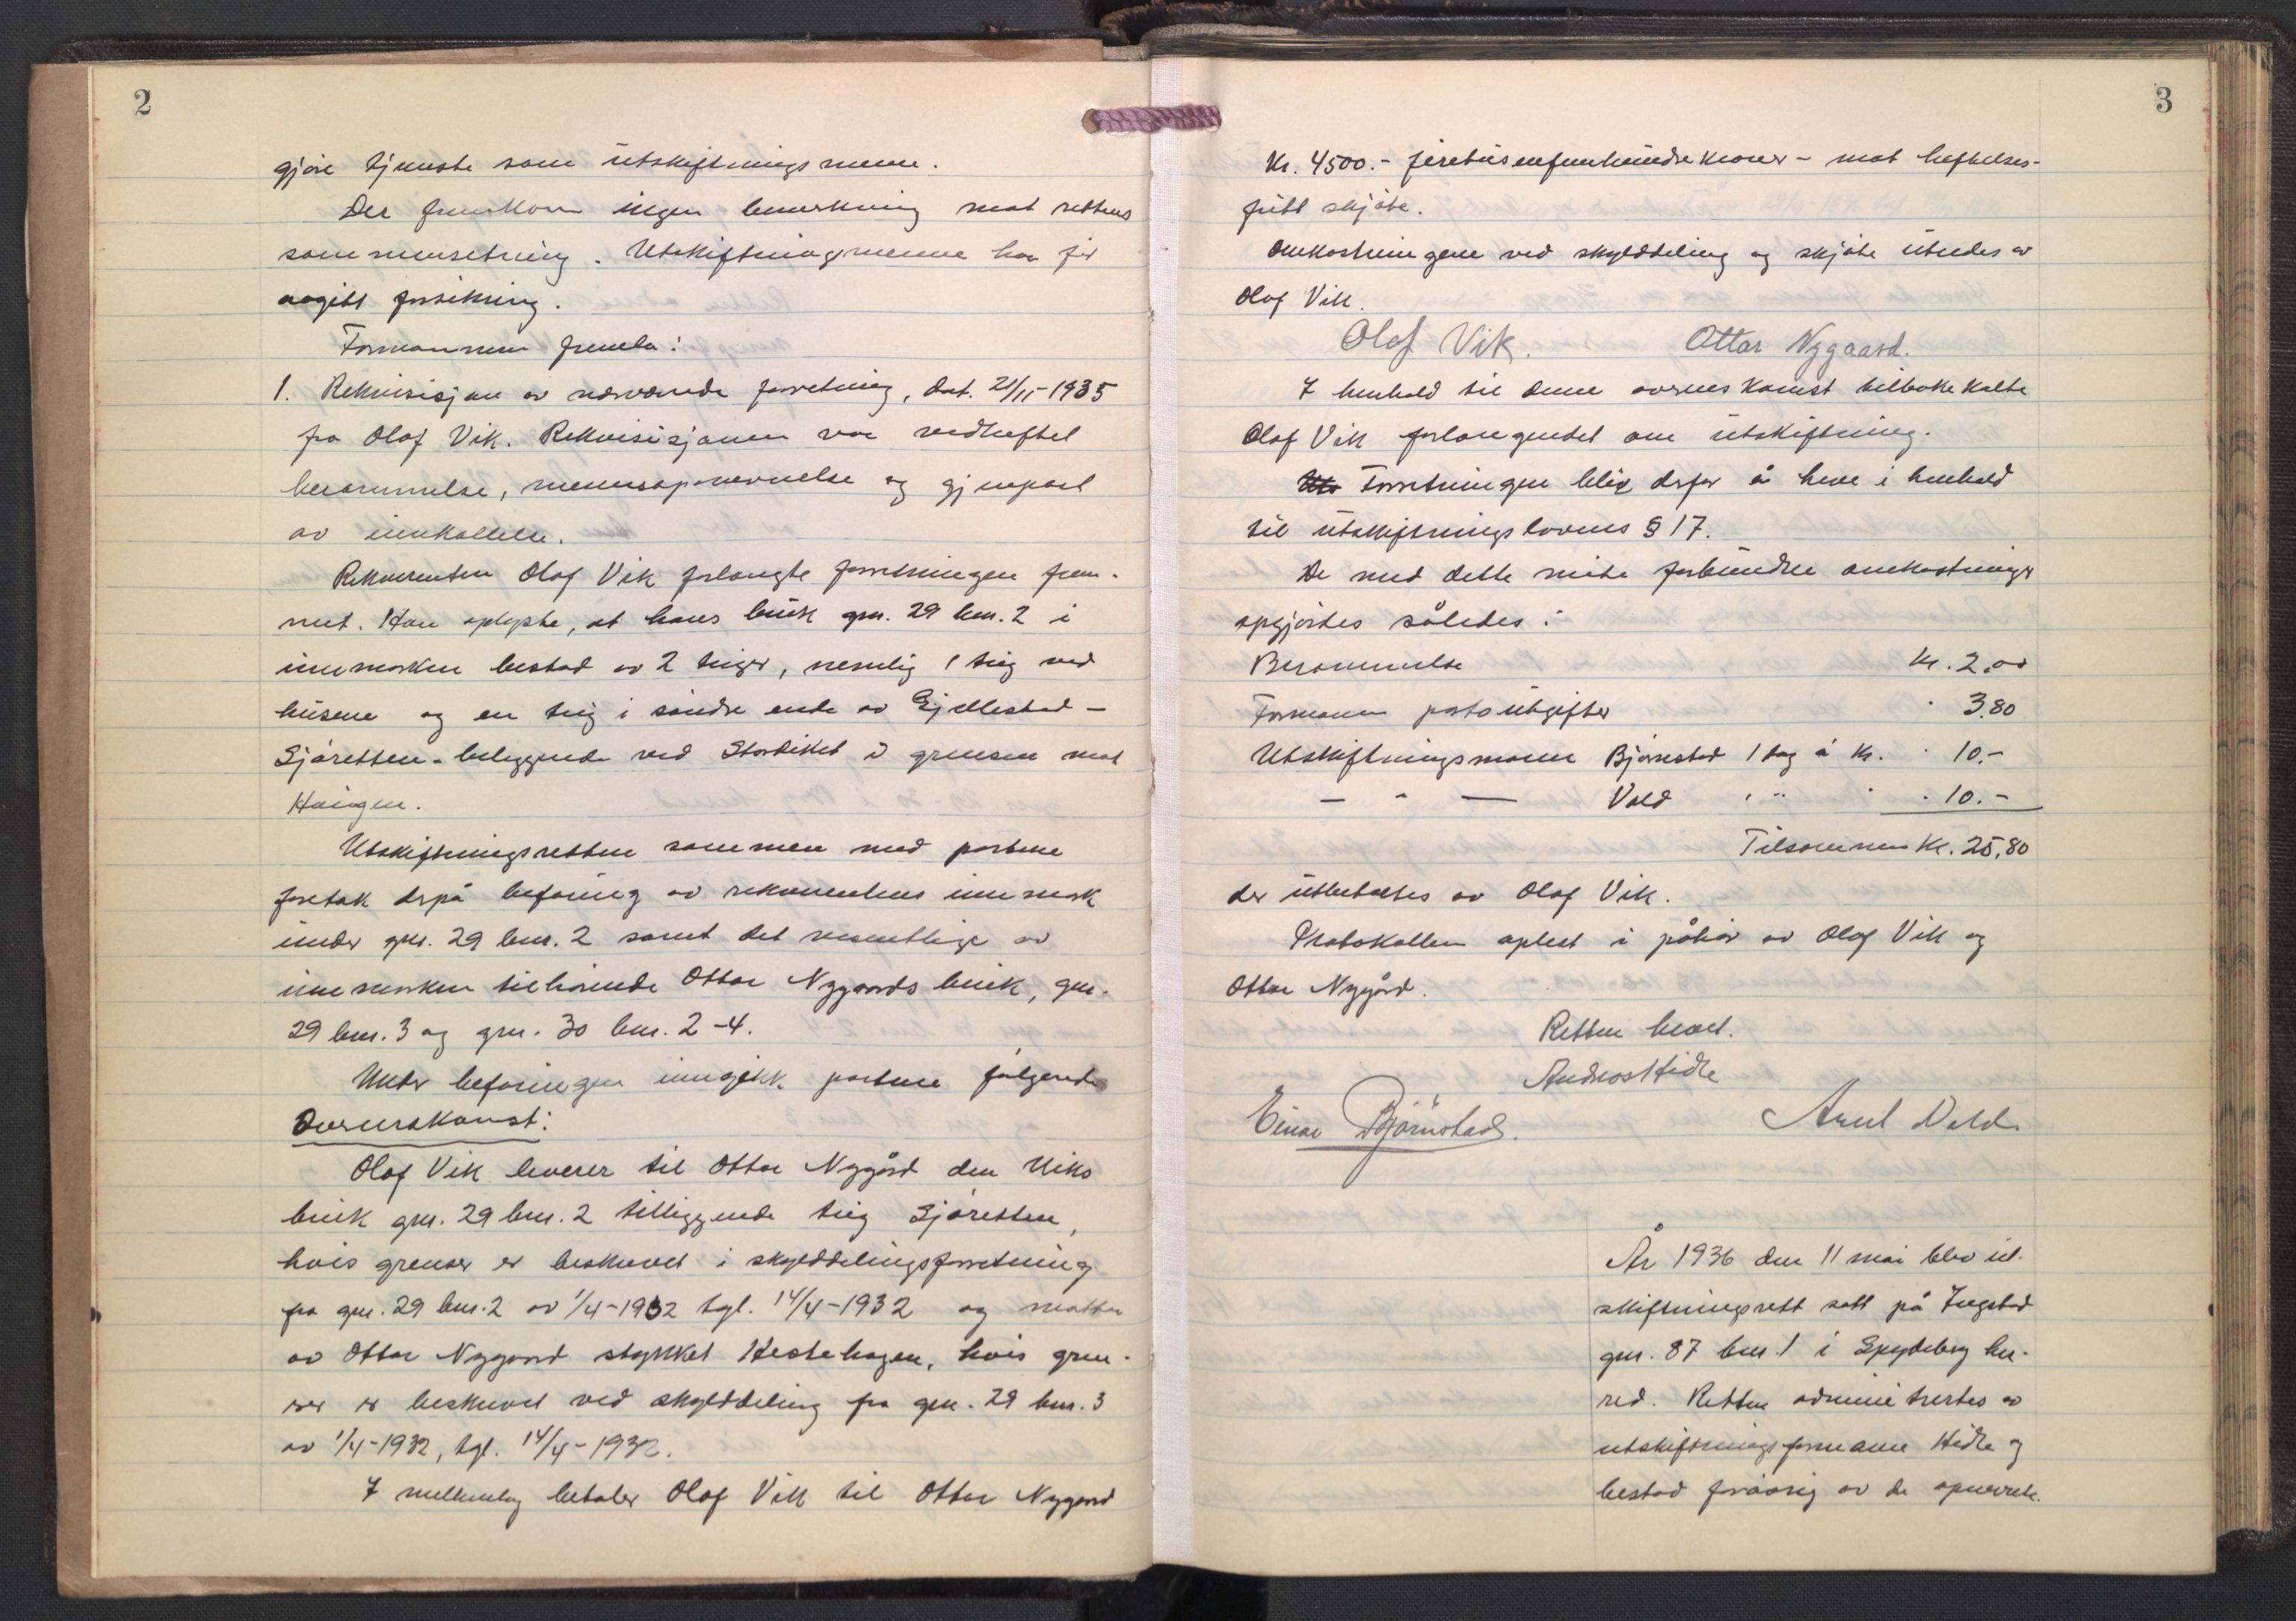 2
gjøre tjeneste som utskiftningsmenn.
Der fremkom ingen bemerkning mot rettens
sammensetning. Utskiftningsmennene har før
avgitt forsikring.
Formannen fremla:
1. Rekvisisjon av nærværende forretning, dat. 21/11-1935
fra Olaf Vik. Rekvisisjonen var vedheftet
berammelse, mennsopnevnelse og gjenpart
av innkallelse.
Rekvirenten Olaf Vik forlangte forretningen frem-
met. Han oplyste, at hans bruk gnr. 29 bnr. 2 i
innmarken bestod av 2 teiger, nemlig 1 teig ved
husene og en teig i søndre ende av Gjellestad-
Sjøretten - beliggende ved Stordiket i grensen mot
Haugen.
Utskiftningsretten sammen med partene
foretok derpå befaring av rekvirentens innmark
under gnr. 29 bnr. 2 samt det vesentlige av
innmarken tilhørende Ottar Nygaards bruk, gnr.
29 bnr. 3 og gnr. 30 bnr. 2-4.
Under befaringen inngikk partene følgende
Overenskomst:
Olaf Vik leverer til Ottar Nygård den Viks
bruk gnr. 29 bnr. 2 tilliggende teig Sjøretten,
hvis grenser er beskrevet i skylddelingsforretning
fra gnr. 29 bnr. 2 av 1/4-1932 tgl. 14/4-1932 og mottar
av Ottar Nygaard stykket Hestehagen, hvis gren-
ser er beskrevet ved skylddeling fra gnr. 29 bnr. 3
av 1/4-1932, tgl. 14/4-1932.
I mellemlag betaler Olaf Vik til Ottar Nygaard
3
Kr. 4500.- firetusenfemhundre kroner - mot heftelses-
fritt skjøte.
Omkostningene ved skylddeling og skjøte utredes av
Olaf Vik.
Olaf Vik. Ottar Nygaard.
I henhold til denne overenskomst tilbakekalte
Olaf Vik forlangendet om utskiftning.
Forretningen blir derfor å heve i henhold
til utskiftningslovens § 17.
De med dette møte forbundne omkostninger
opgjørtes således:
Berammelse Kr. 2,00
Formann portoutgifter " 3,80
Utskiftningsmann Bjørnstad 1 dag à kr. " 10.-
— " — Vold " " " " 10.-
Tilsammen Kr. 25,80
der utbetaltes av Olaf Vik.
Protokollen oplest i påhør av Olaf Vik og
Ottar Nygård.
Retten hevet.
Andreas Hidle
Einar Bjørnstad. Axel Vold
År 1936 den 11 mai blev ut-
skiftningsrett satt på Ingstad
gnr. 87 bnr. 1 i Spydeberg her-
red. Retten administrertes av
utskiftningsformann Hidle og
bestod forøvrig av de opnevnte